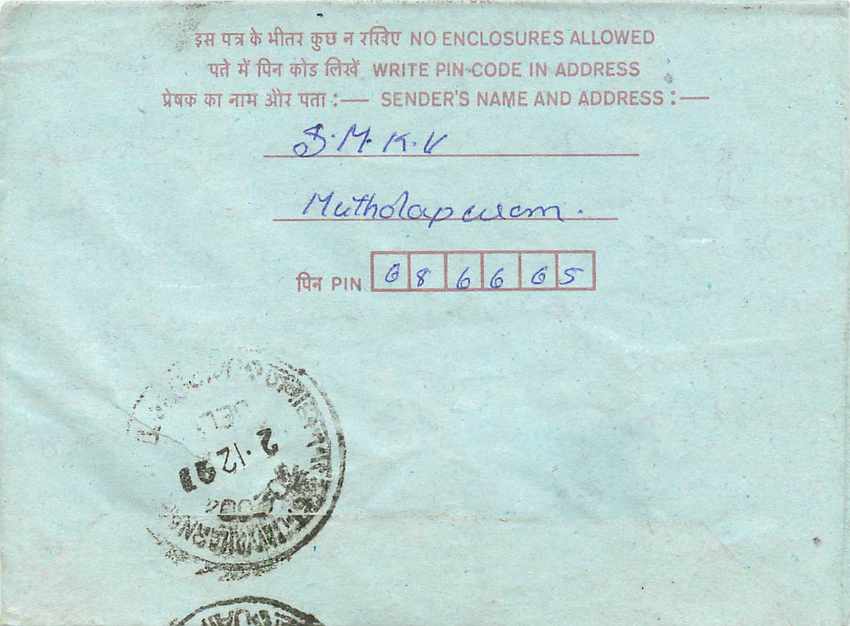 इस पत्र के भीतर कुछ न रखिए NO ENCLOSURES ALLOWED
पते में पिन कोड लिखें WRITE PIN CODE IN ADDRESS
प्रेषक का नाम और पता :— SENDER'S NAME AND ADDRESS :—
S.M.K.V
Mutholapuram.
पिन PIN 686665
DELY
2.12.97